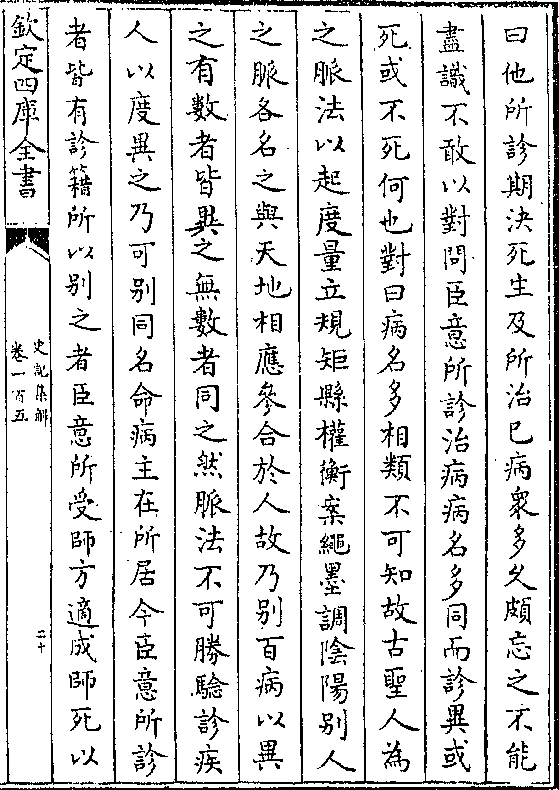 曰他所診期決死生及所治已病衆多久頗忘之不能
盡識不敢以對問臣意所診治病病名多同而診異或
死或不死何也對曰病名多相類不可知故古聖人為
之脈法以起度量立規矩縣權衡案繩墨調隂陽别人
之脈各名之與天地相應參合於人故乃别百病以異
之有數者皆異之無數者同之然脈法不可勝驗診疾
人以度異之乃可别同名命病主在所居今臣意所診
者皆有診籍所以别之者臣意所受師方適成師死以
欽定四庫全書
史記集解
卷一百五
二十